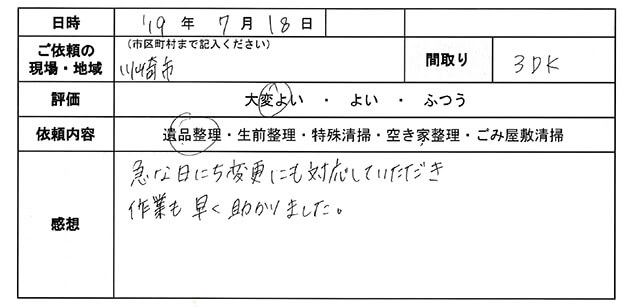 日時 '19 年 7 月 18 日
ご依頼の (市区町村まで記入ください)
現場・地域 川崎市 間取り 3DK
評価 大変よい ・ よい ・ ふつう
依頼内容 遺品整理・生前整理・特殊清掃・空き家整理・ごみ屋敷清掃
急な日にち変更にも対応していただき
感想 作業も早く助かりました。